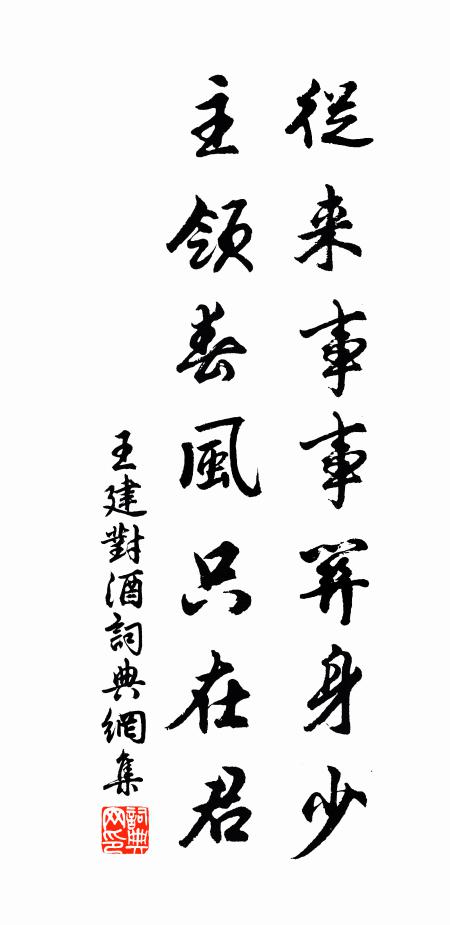 從来事事關身少
主領春風只在君
王建對酒詞典網集
詞典
网印